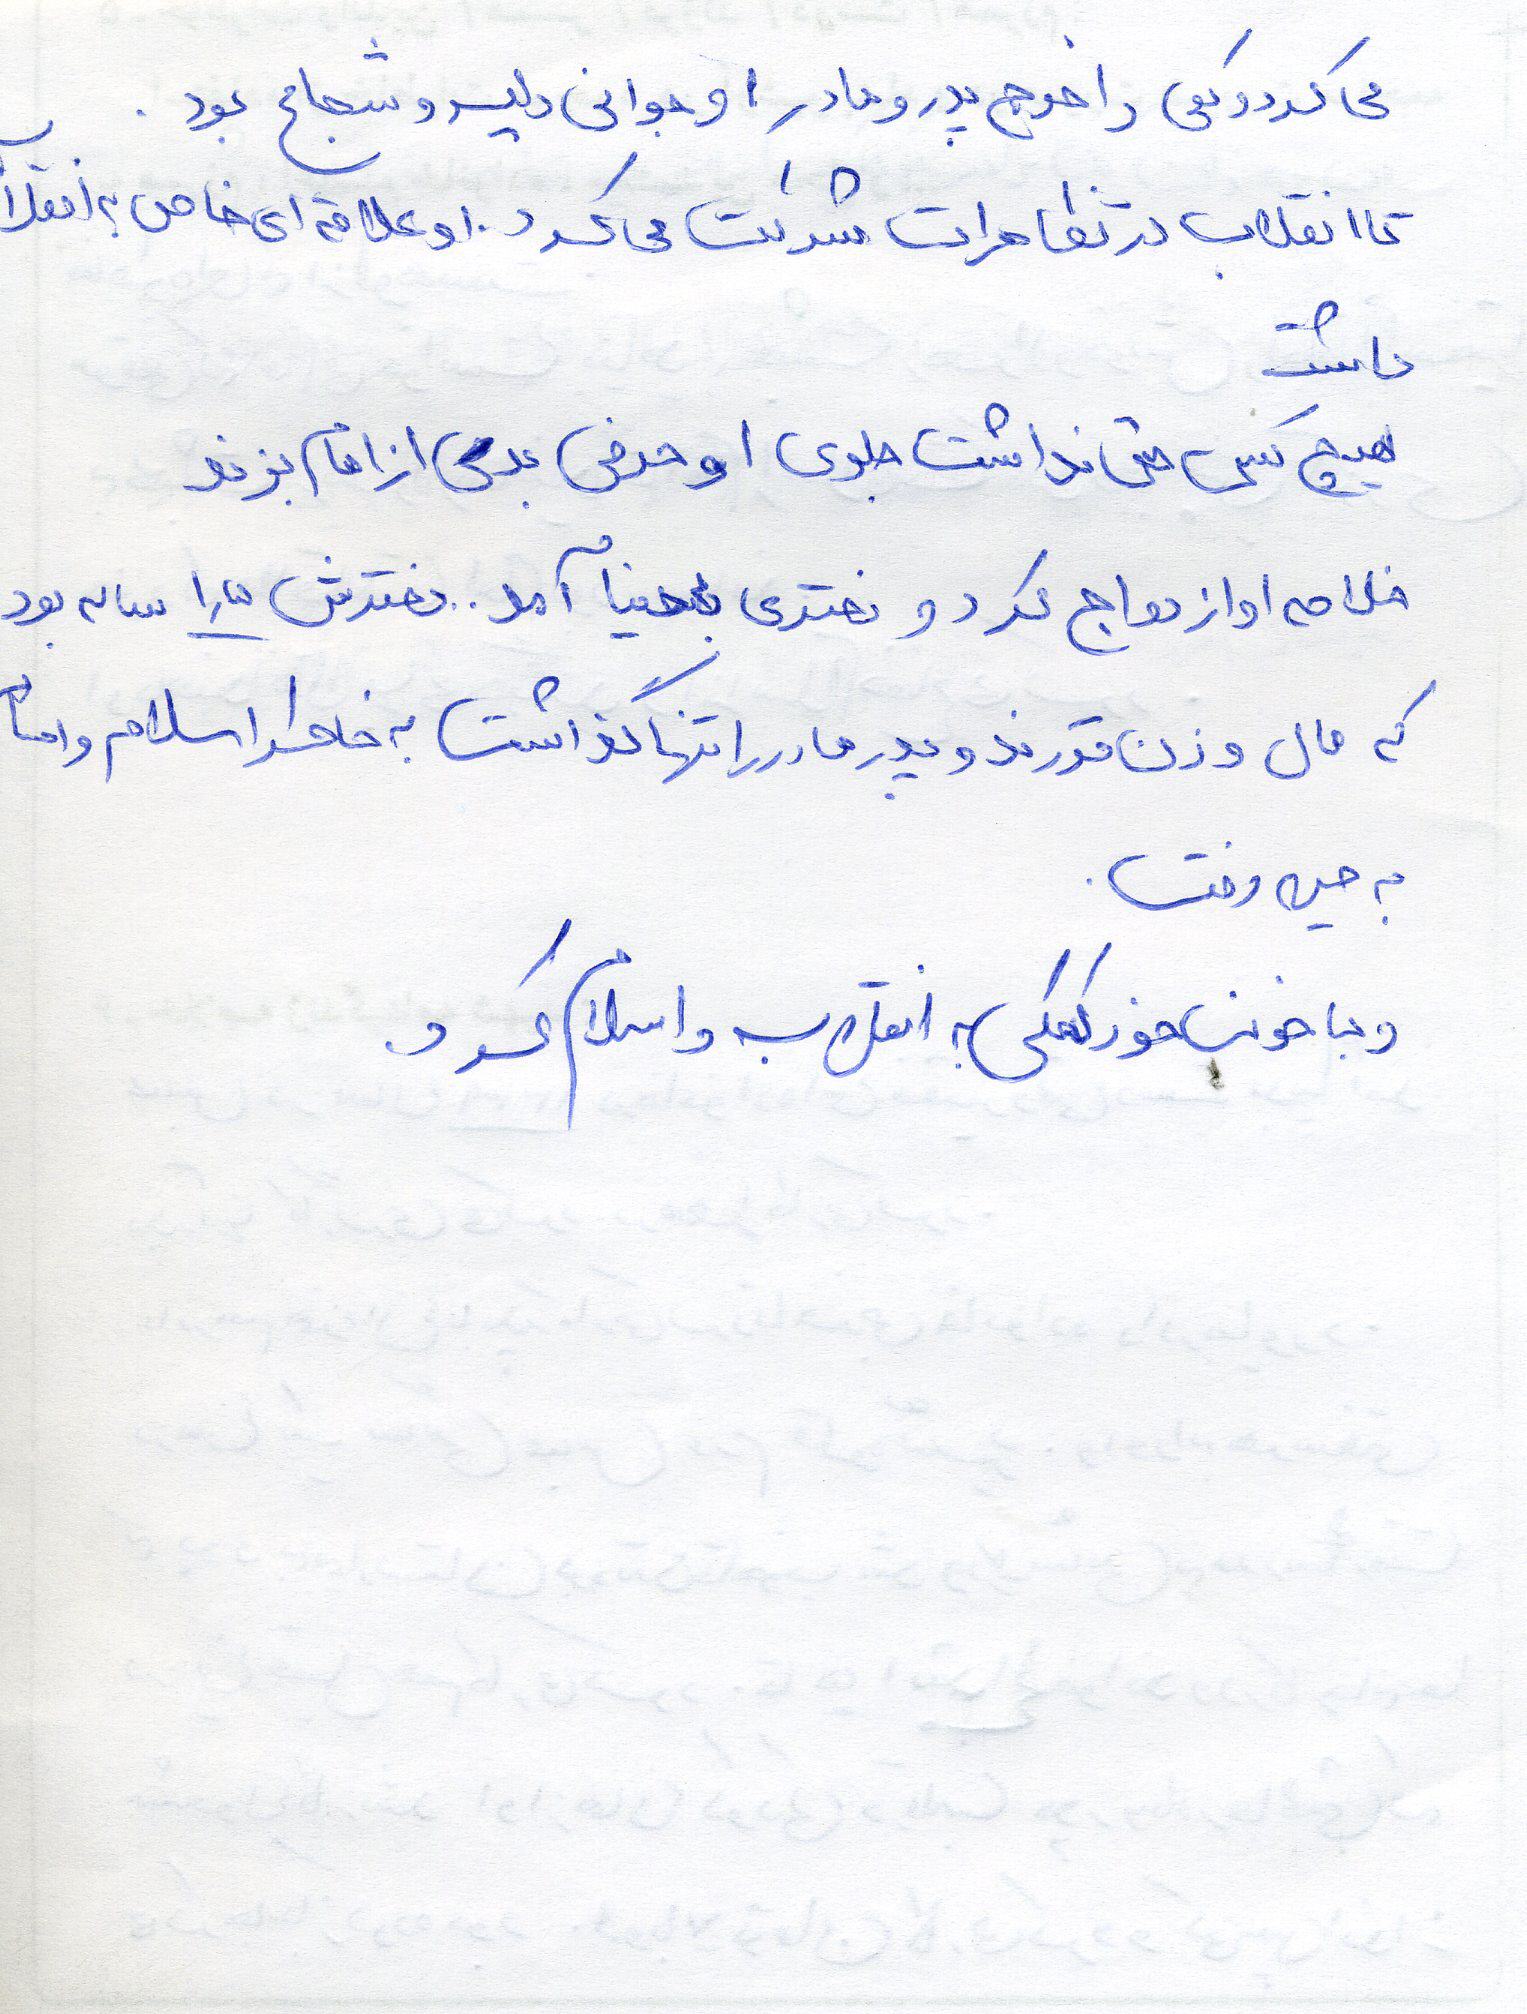 می کرد و کمی را خرج پدر و مادر او جوانی دلیر و شجاع بود.
تا انقلاب در تظاهرات شرکت می کرد. او علاقه ای خاص به انقلاب
داشت
هیچ کس حق نداشت جلوی او حرفی بدی از امام بزند
خلاصه او ازدواج کرد و دختری به دنیا آمد.. دخترش ساله بود
که مال و زن و فرزند و پدر مادر را تنها گذاشت به خاطر اسلام و امام
به جبهه رفت.
و با خون خود کمکی به انقلاب و اسلام کرد